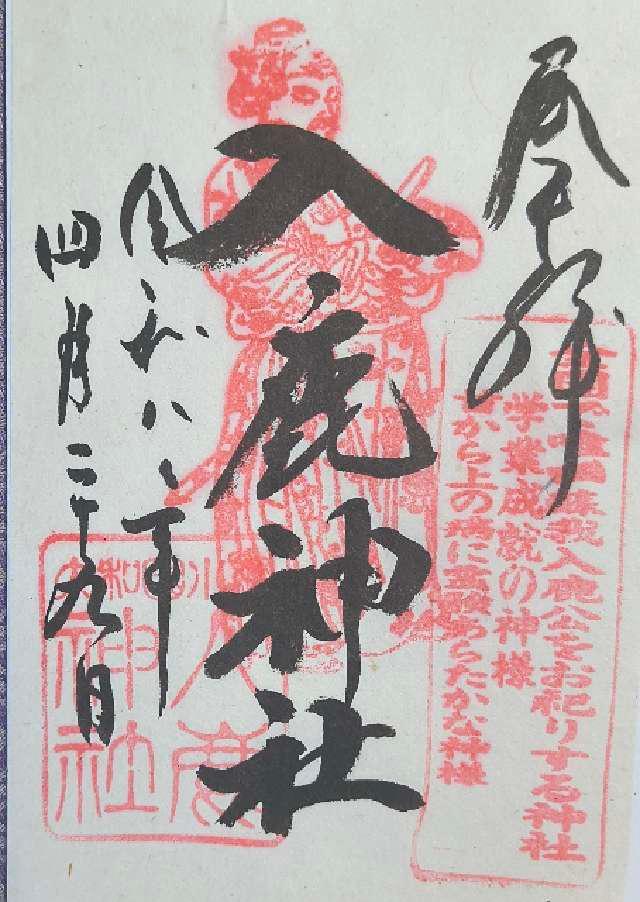 奉拝
全国で唯一蘇我入鹿公をお祀りする神社
学業成就の神様
首から上の病に霊験あらたかな神様
入鹿神社
令和八年
四月二十九日
入鹿
神社